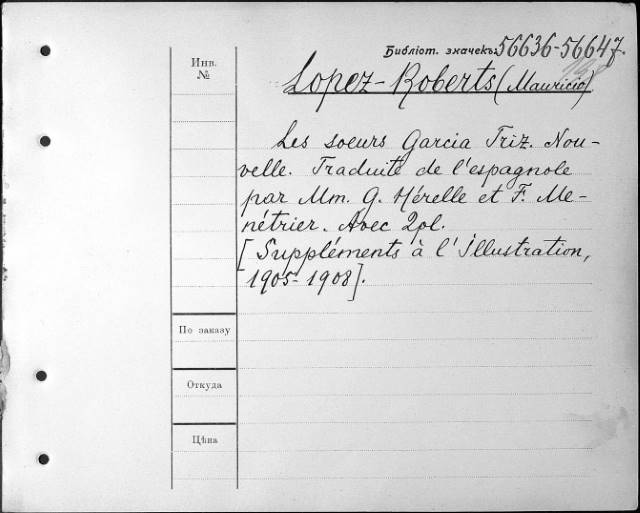 Библіот. значекъ: 56636-56647.
Инв.
№
Lopez-Roberts (Mauricio)
Les soeurs Garcia Triz. Nou-
velle. Traduite de l'espagnole
par Mm. G. Hérelle et F. Me-
nétrier. Avec 2pl.
[Suppléments à l'illustration,
1905-1908].
По заказу
Откуда
Цѣна